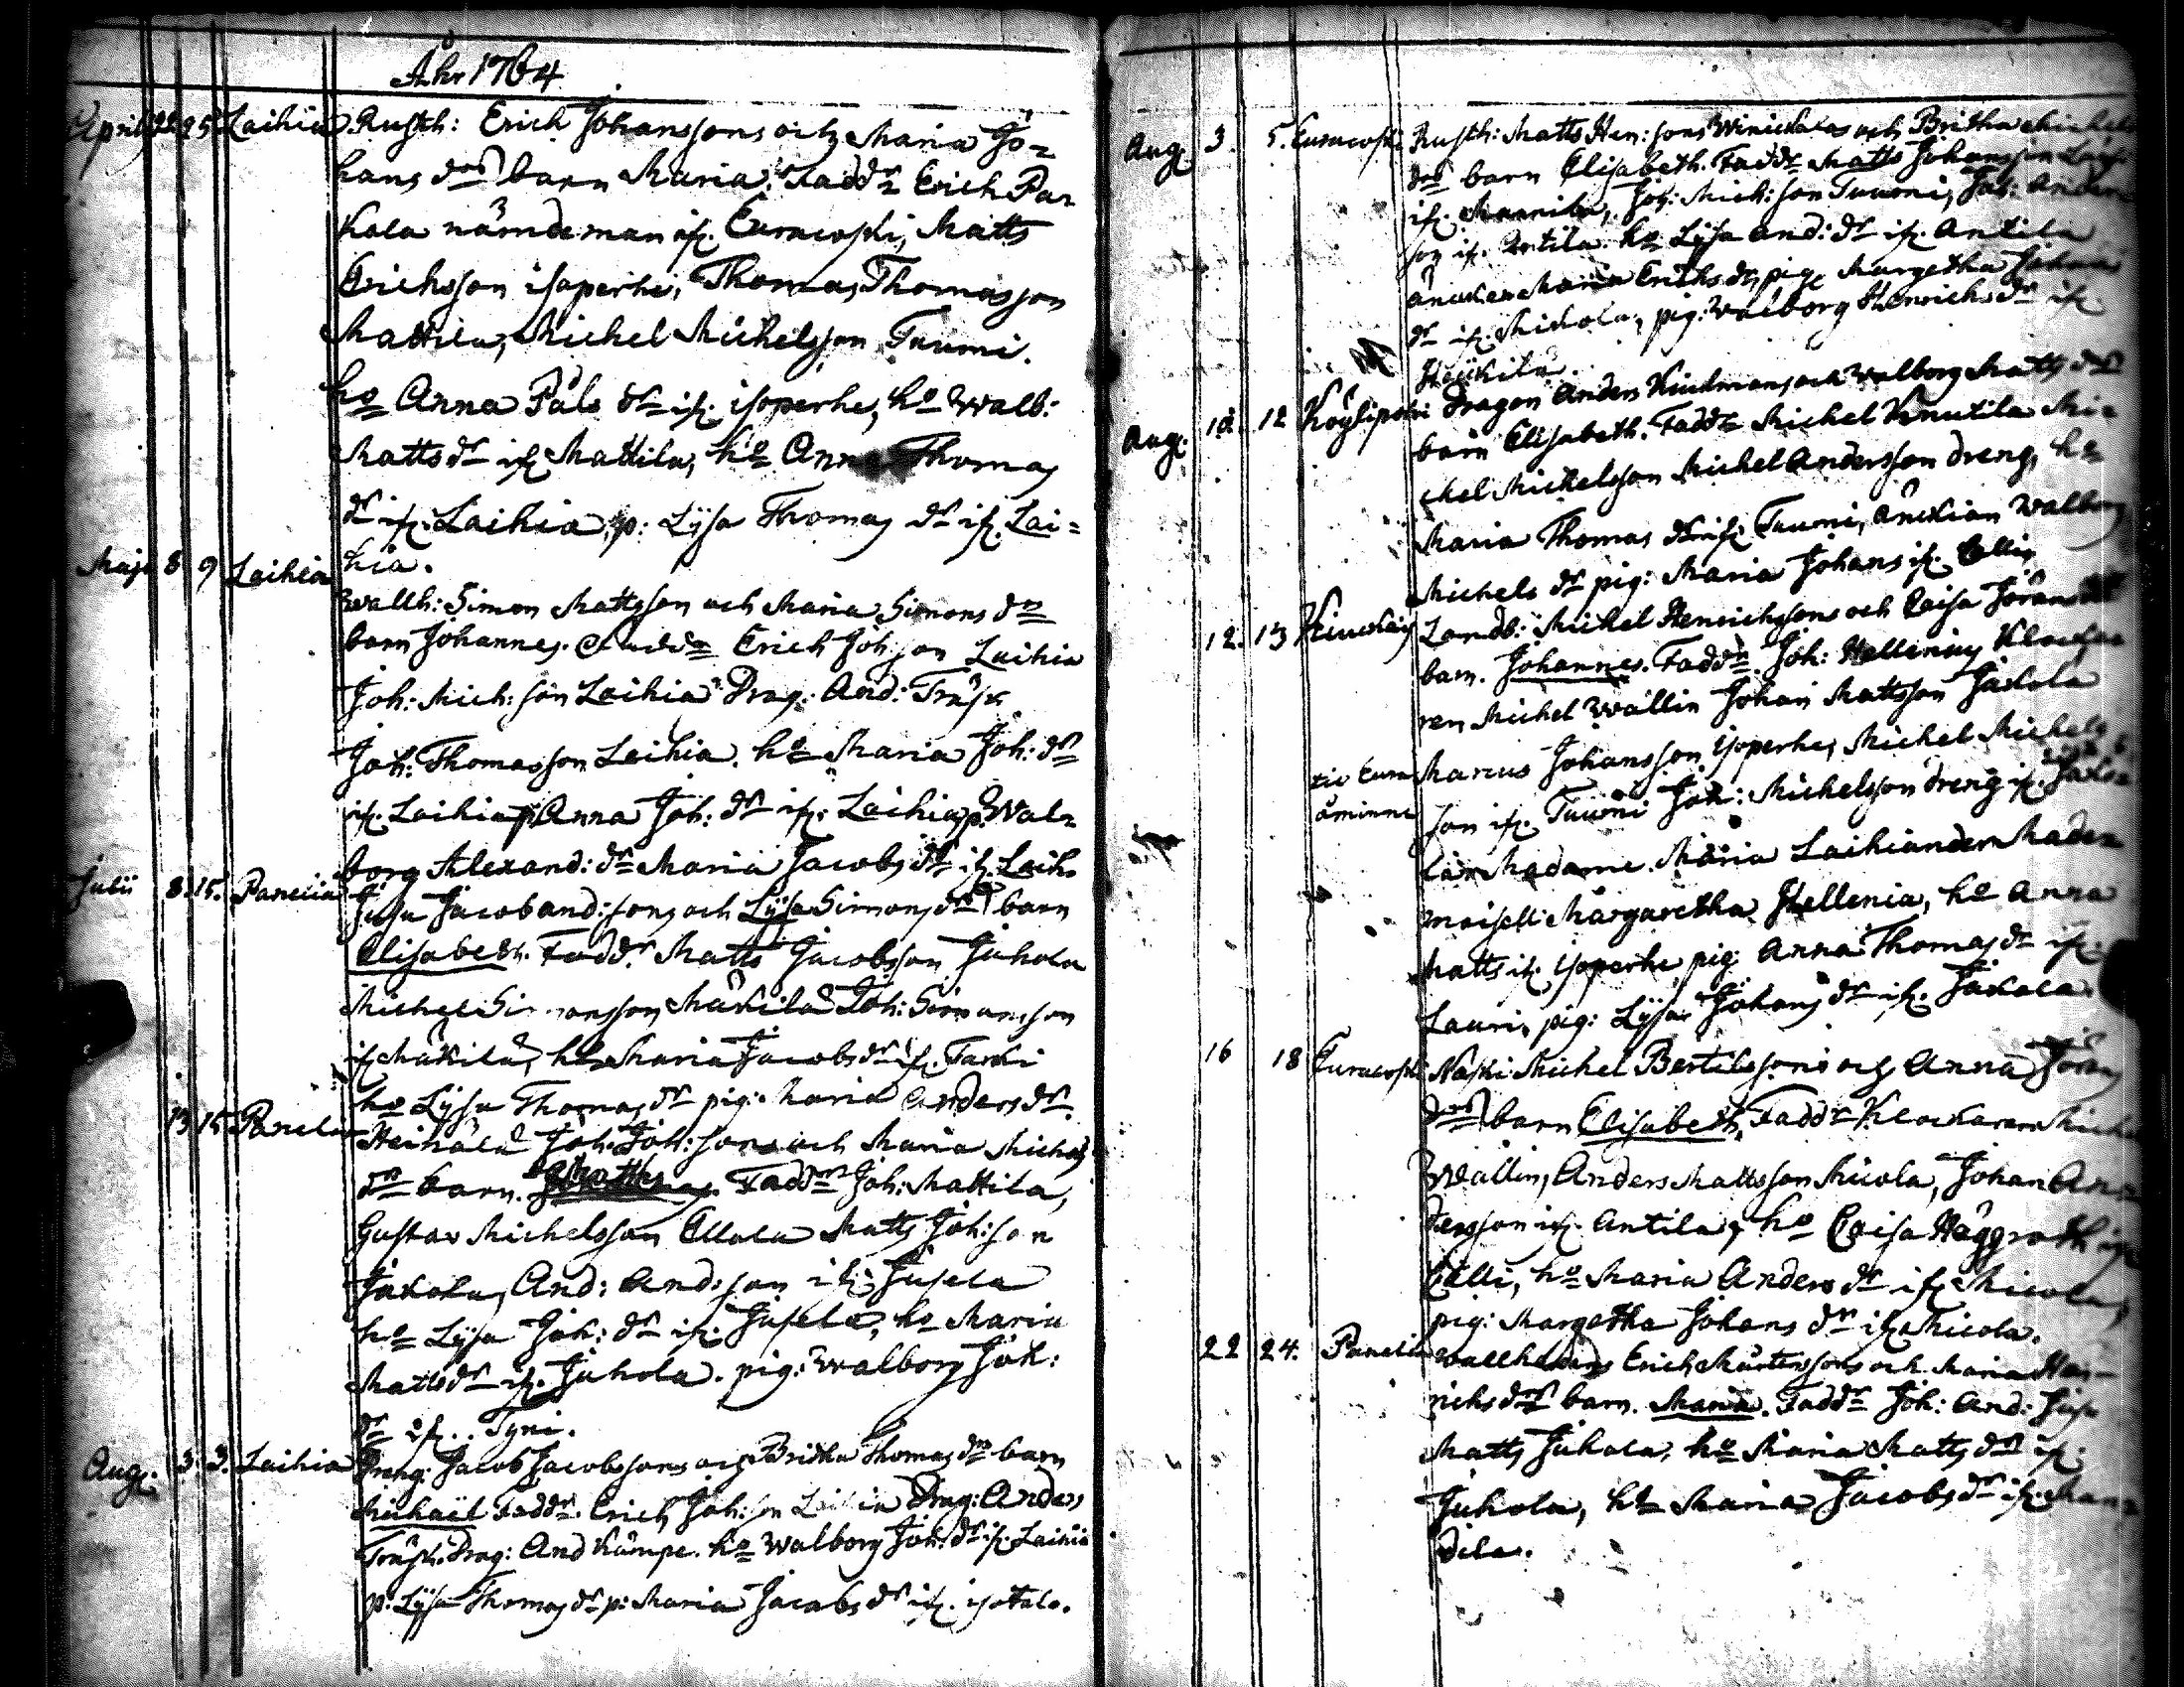 Åhr 1764
April 22 25 Laihia Rusth: Erich Johanssons och Maria Jo=
hans drs barn Maria. Faddr Erich Par
kola nämndeman ifr. Euracoski, Matts
Erichsson isoperhe, Thomas Thomasson
Mattila, Michel Michelsson Tuumi.
ho Anna Påls dr ifr. isoperhe, ho Walb:
Matts dr ifr Mattila, ho Anna Thomas
dr ifr. Laihia, p: Lysa Thomas dr ifr. Lai=
hia.
Maji 8 9 Laihia Wallh: Simon Mattsson och Maria Simons drs
barn Johannes. Faddr Erich Joh son Laihia
Joh: Mich: son Laihia Drag: And: Träsk
Joh: Thomasson Laihia. ho Maria Joh: dr
ifr. Laihia p: Anna Joh: dr ifr. Laihia, p: Wal=
borg Alexand: dr Maria Jacobs dr ifr. Laih.
Julii 8. 15. Panelia Jusu Jacob And: sons och Lysa Simons drs barn
Elisabeth. Faddr. Matts Jacobsson Juhola
Michel Simonsson Mäkilä Joh: Simonsson
ifr Mäkilä, ho Maria Jacobs dr ifr. Tarki
ho Lysa Thomas dr pig: Maria Anders dr.
13 15 Panelia Heikälä Joh: Joh: sons och Maria Michels
drs barn. Matths. Faddr Joh: Mattila,
Gustav Michelsson Ellola Matts Joh: son
Jakola, And: And: son ifr. Jusela
ho Lysa Joh: dr ifr. Jusela, ho Maria
Matts dr ifr. Juhola. pig: Walborg Joh:
dr ifr. Tyni.
Aug. 3. 3. Laihia Dreng: Jacob Jacobssons och Britha Thomas drs barn
Michaël Faddr. Erich Joh: son Laihia Drag: Anders
Träsk. Drag: And Kämpe. ho Walborg Joh: dr ifr. Laihia
p: Lysa Thomas dr p: Maria Jacobs dr ifr. isotalo.
Aug 3. 5. Euracoski Rusth: Matts Hen: sons Winickalas och Britha Michels
drs barn Elisabeth. Faddr Matts Johansson
ifr. Mannila, Joh: Mich: son Tuumi, Joh: Anders
son ifr. Antila. ho Lysa And: dr ifr. Antila
änckan Maria Erichs dr, pig Margetha Johans
dr ifr. Mickola, pig: Walborg Henrichs dr ifr
Heikilä.
Aug. 10. 12 Köylipolvi Dragon Anders Kiulmans och Walborg Matts drs
barn Elisabeth. Faddr Michel Knutila Mi=
chel Michelsson Michel Andersson dreng, ho
Maria Thomas dr ifr. Tuumi, änckian Walborg
Michels dr pig: Maria Johans ifr. Cellis
12. 13 Kiuckais Landb: Michel Henrichssons och Caisa Jörans
barn. Johannes. Faddr. Joh: Hellenius Klocka
ren Michel Wallin Johan Mattsson Jakola
til Eura Marcus Johansson Isoperhe, Michel Michels
åminne son ifr. Tuomi Joh: Michelsson dreng ifr. Jako=
la Madame. Maria Laihiander Made=
moisell: Margaretha Hellenia, ho Anna
Matts ifr. Isoperhe pig: Anna Thomas dr ifr.
Lauri, pig: Lysa Johans dr ifr. Jakola.
16 18 Euracoski Näski Michel Bertilssons och Anna Jörans
drs barn Elisabeth, Faddr Klockaren Michel
Wallin, Anders Mattsson Micola, Johan An=
dersson ifr. Antila, ho Caisa Häggroth ifr
Cälli, ho Maria Anders dr ifr Micola,
pig: Margetha Johans dr ifr Micola.
22 24. Panelia Wallhedens Erich Mårtenssons och Maria Hen=
richs drs barn. Maria. Faddr Joh: And: Jusu
Matts Juhola, ho Maria Matts dr ifr.
Juhola, ho Maria Jacobs dr ifr. Man=
dila.